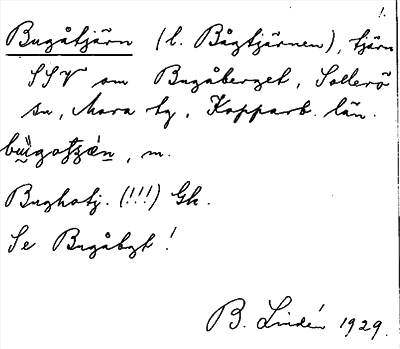 1.
Bugåtjärn (l. Bågtjärnen), tjärn
SSV om Bugåberget, Sollerö
sn, Mora tg, Kopparb. län.
, m.
Bughotj. (!!!) Gk.
Se Bugåbgt!
B. Lindén 1929.